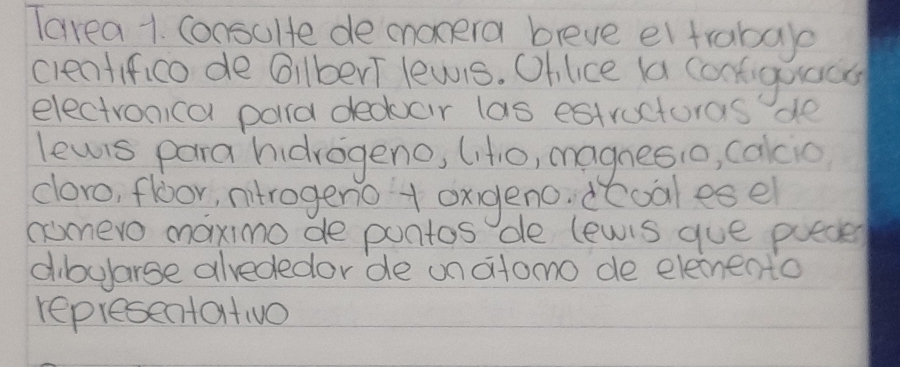 Tarea 1. Consulte de manera breve el trabajo
cientifico de Gilbert lewis. Utilice la configuración
electronica para deducir las estructuras de
lewis para hidrógeno, litio, magnesio, calcio,
cloro, flúor, nitrogeno y oxigeno. ¿Cuál es el
número máximo de puntos de lewis que pueden
dibujarse alrededor de un átomo de elemento
representativo